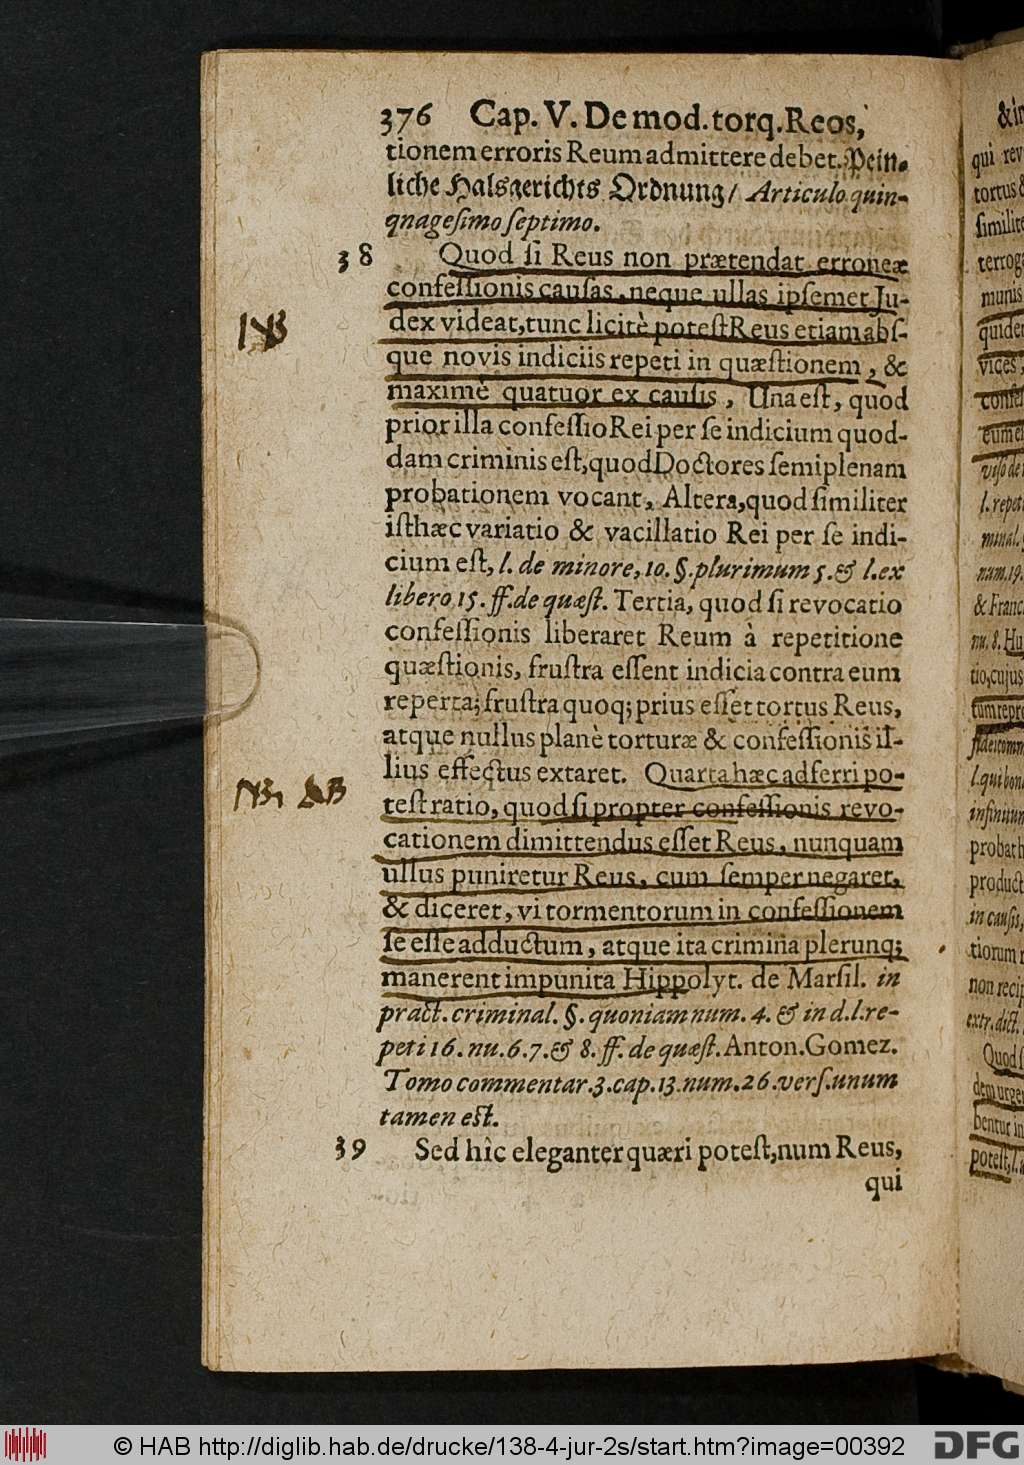 376 Cap. V. De mod. torq. Reos,
tionem erroris Reum admittere debet. Pein⸗
liche Halsgerichts Ordnung/ Articulo quin-
qnagesimo septimo.
38 Quod ſi Reus non prætendat erroneæ
confeſſionis cauſas, neque ullas ipſemet Ju-
dex videat, tunc licitè poteſt Reus etiam abſ-
que novis indiciis repeti in quæſtionem, &
NB
maximè quatuor ex cauſis, Una eſt, quod
prior illa confeſſio Rei per ſe indicium quod-
dam criminis eſt, quod Doctores ſemiplenam
probationem vocant, Altera, quod ſimiliter
iſthæc variatio & vacillatio Rei per ſe indi-
cium eſt, l. de minore, 10. §. plurimum 5. & l. ex
libero, 15. ff. de quæſt. Tertia, quod ſi revocatio
confeſſionis liberaret Reum à repetitione
quæſtionis, fruſtra eſſent indicia contra eum
reperta; fruſtra quoq; prius eſſet tortus Reus,
atque nullus planè torturæ & confeſſionis il-
lius effectus extaret. Quarta hæc adferri po-
teſt ratio, quod ſi propter confeſſionis revo-
NB. NB
cationem dimittendus eſſet Reus, nunquam
ullus puniretur Reus, cum ſemper negaret,
& diceret, vi tormentorum in confeſſionem
ſe eſſe adductum, atque ita crimina plerunq;
manerent impunita Hippolyt. de Marſil. in
pract. criminal. §. quoniam num. 4. & in d. l. re-
peti 16. nu. 6. 7. & 8. ff. de quæſt. Anton. Gomez.
Tomo commentar. 3. cap. 13. num. 26. verſ. unum
tamen eſt.
39 Sed hîc eleganter quæri poteſt, num Reus,
qui
qui rev
tortus &
ſimilite
terroga
munis
quider
vices,
confeſ
eum
l. repet
num. 19.
& Franc
nu. 8. Hu
tio, cujus
tum repr
l. qui bon
infinitun
probath
product
in cauſis,
tiorum
non recip
extr. dict.
Quod ſ
dem urge
bentur in
poteſt, l.
© HAB http://diglib.hab.de/drucke/138-4-jur-2s/start.htm?image=00392
DFG